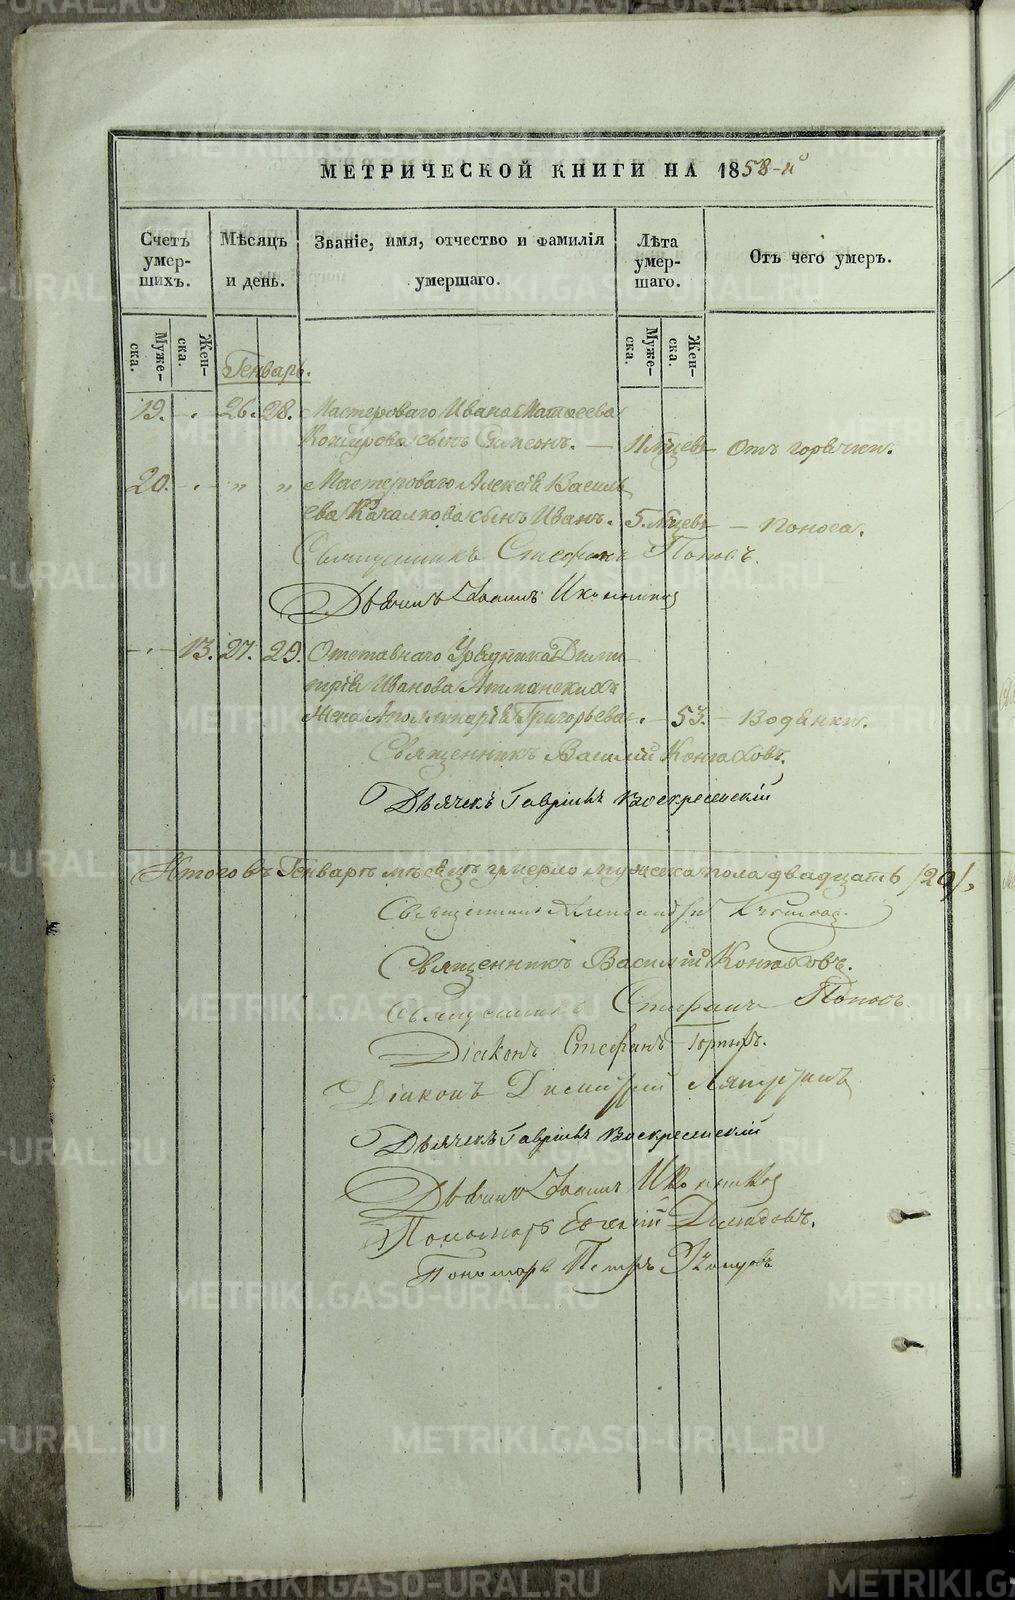 МЕТРИЧЕСКОЙ КНИГИ НА 1858-й
Счетъ умер-шихъ.
Мѣсяцъ и день.
Званіе, имя, отчество и фамилія умершаго.
Лѣта умер-шаго.
Отъ чего умеръ.
Муже-ска.
Жен-ска.
Муже-ска.
Жен-ска.
Генварь.
19. 26. 28. Мастероваго Ивана Матѳеева
сынъ Симеонъ. — 11 мцевъ — Отъ горячки.
20. — „ „ Мастероваго Алексѣя Василь
ева Качалкова сынъ Иванъ. 5. мцевъ — Поноса.
Священникъ Стефанъ Поповъ.
Дьячекъ Іоаннъ Иконников
13. 27. 29. Отставнаго Урядника Дими
трія Иванова
жена Аполлинарія Григорьева. — 53. — Водянки.
Священникъ Василій Конгаховъ.
Дьячекъ Гавріилъ Воскресенскій
Итого въ Генварѣ мѣсяцѣ умерло мужеска пола двадцать /20/,
Священникъ Александръ
Священникъ Василій Конгаховъ.
Священникъ Стефанъ Поповъ.
Діаконъ Стефанъ
Діаконъ Димитрій
Дьячекъ Гавріилъ Воскресенскій
Дьячекъ Іоаннъ Иконников
Пономарь Евгеній
Пономарь Петръ
METRIKI.GASO-URAL.RU